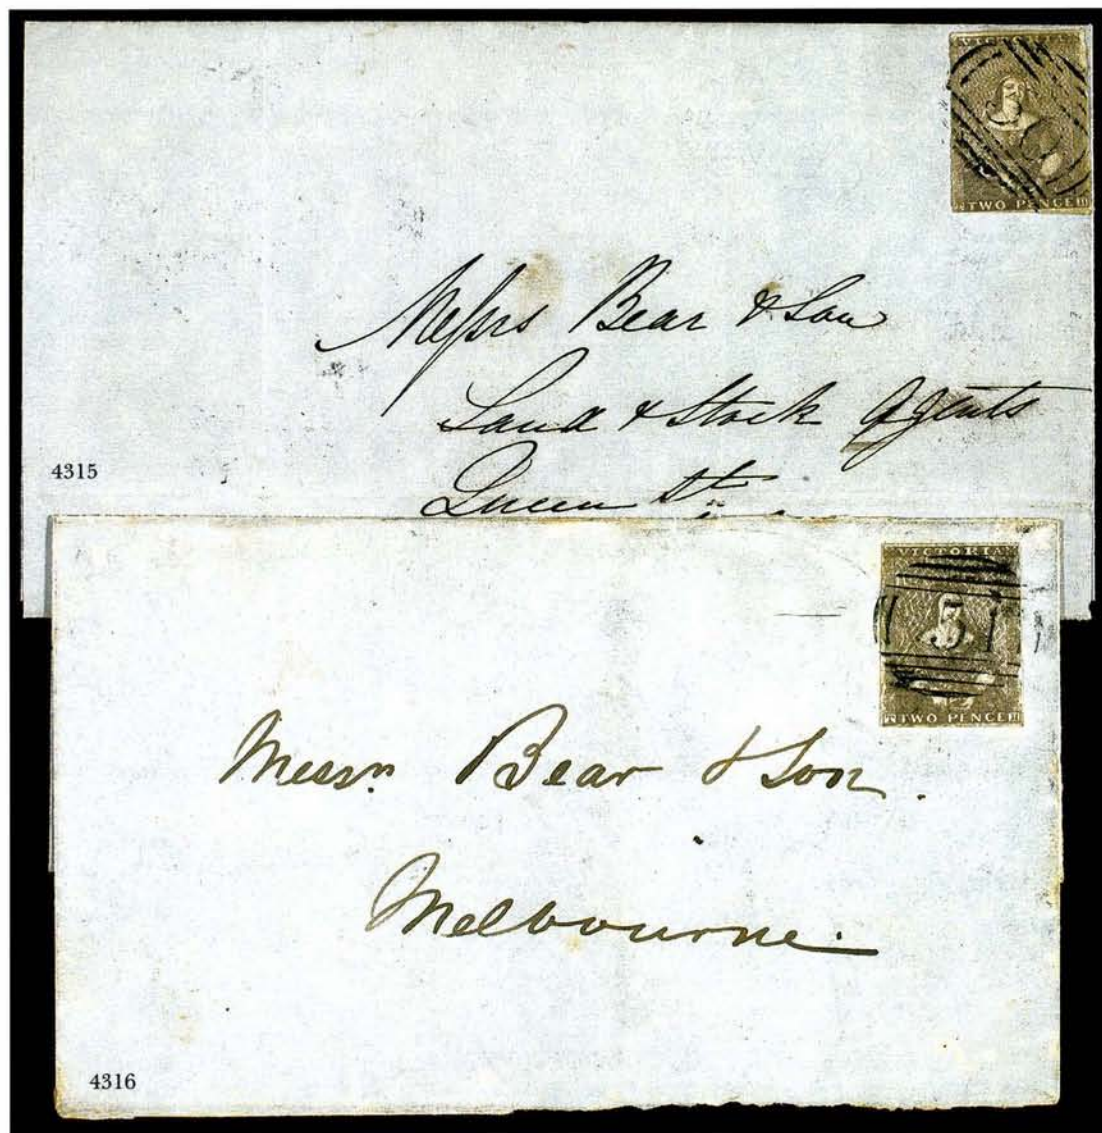 VICTORIA
TWO PENCE
Messrs Bear & Son
Land & Stock Agents
Queen St
4315
VICTORIA
51
TWO PENCE
Messrs. Bear & Son.
Melbourne.
4316